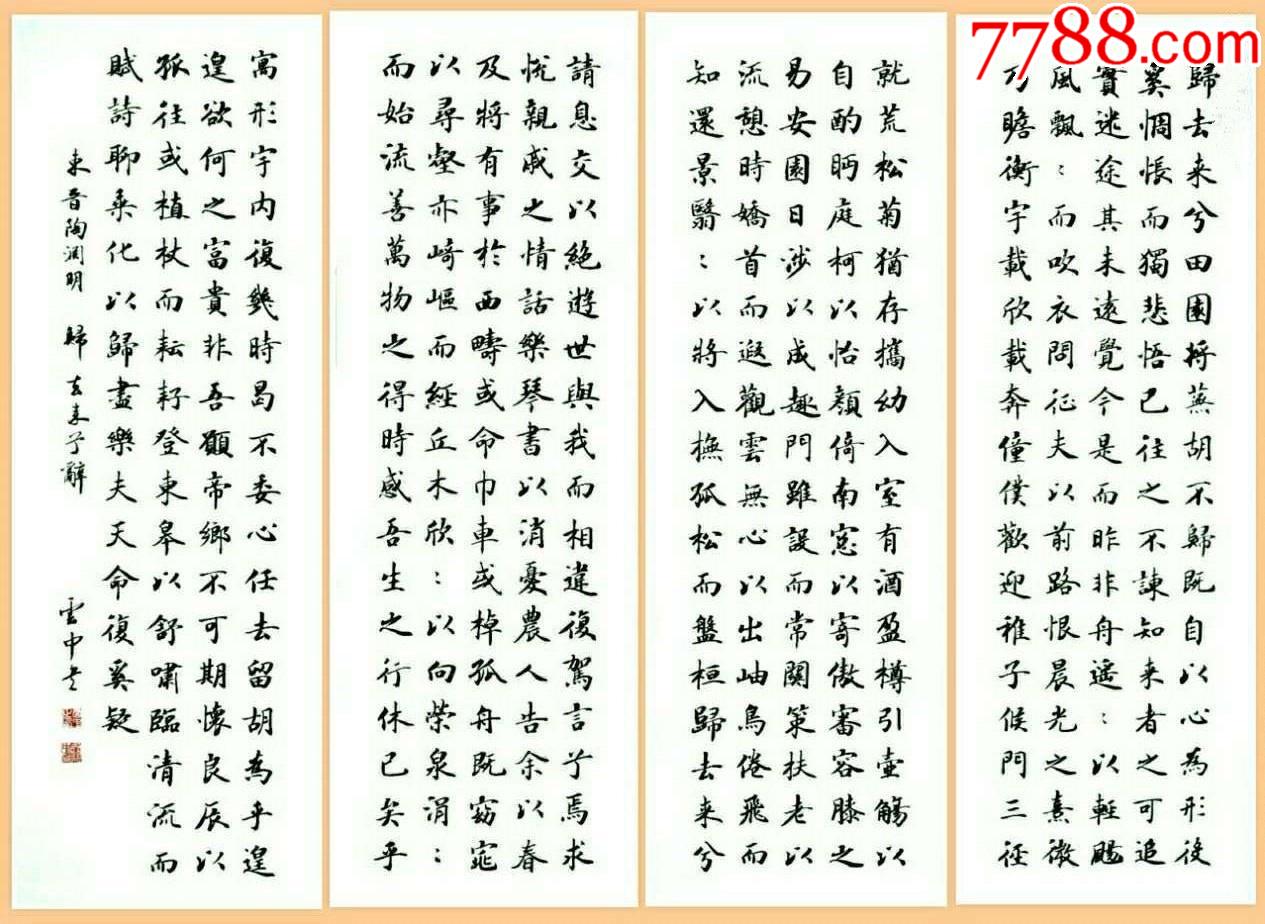 7788.com
歸去来兮田園将蕪胡不歸既自以心為形役
奚惆悵而獨悲悟已往之不諫知来者之可追
實迷途其未遠覺今是而昨非舟遥:以輕颺
風飄:而吹衣問征夫以前路恨晨光之熹微
乃瞻衡宇載欣載奔僮僕歡迎稚子候門三径
就荒松菊猶存攜幼入室有酒盈樽引壺觴以
自酌眄庭柯以怡顔倚南窓以寄傲審容膝之
易安園日涉以成趣門雖設而常關策扶老以
流憩時矯首而遐觀雲無心以出岫鳥倦飛而
知還景翳:以將入撫孤松而盤桓歸去来兮
請息交以絕遊世與我而相違復駕言兮焉求
悅親戚之情話樂琴書以消憂農人告余以春
及將有事於西疇或命巾車或棹孤舟既窈窕
以尋壑亦崎嶇而經丘木欣:以向榮泉涓:
而始流善萬物之得時感吾生之行休已矣乎
寓形宇内復幾時曷不委心任去留胡為乎遑
遑欲何之富貴非吾願帝鄉不可期懷良辰以
孤往或植杖而耘耔登東皋以舒嘯臨清流而
賦詩聊乘化以歸盡樂夫天命復奚疑
東晉陶淵明 歸去来兮辭 雲中